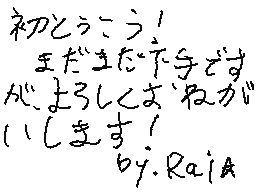 初とうこう!
まだまだ下手です
が、よろしくおねが
いします!
by.RajA